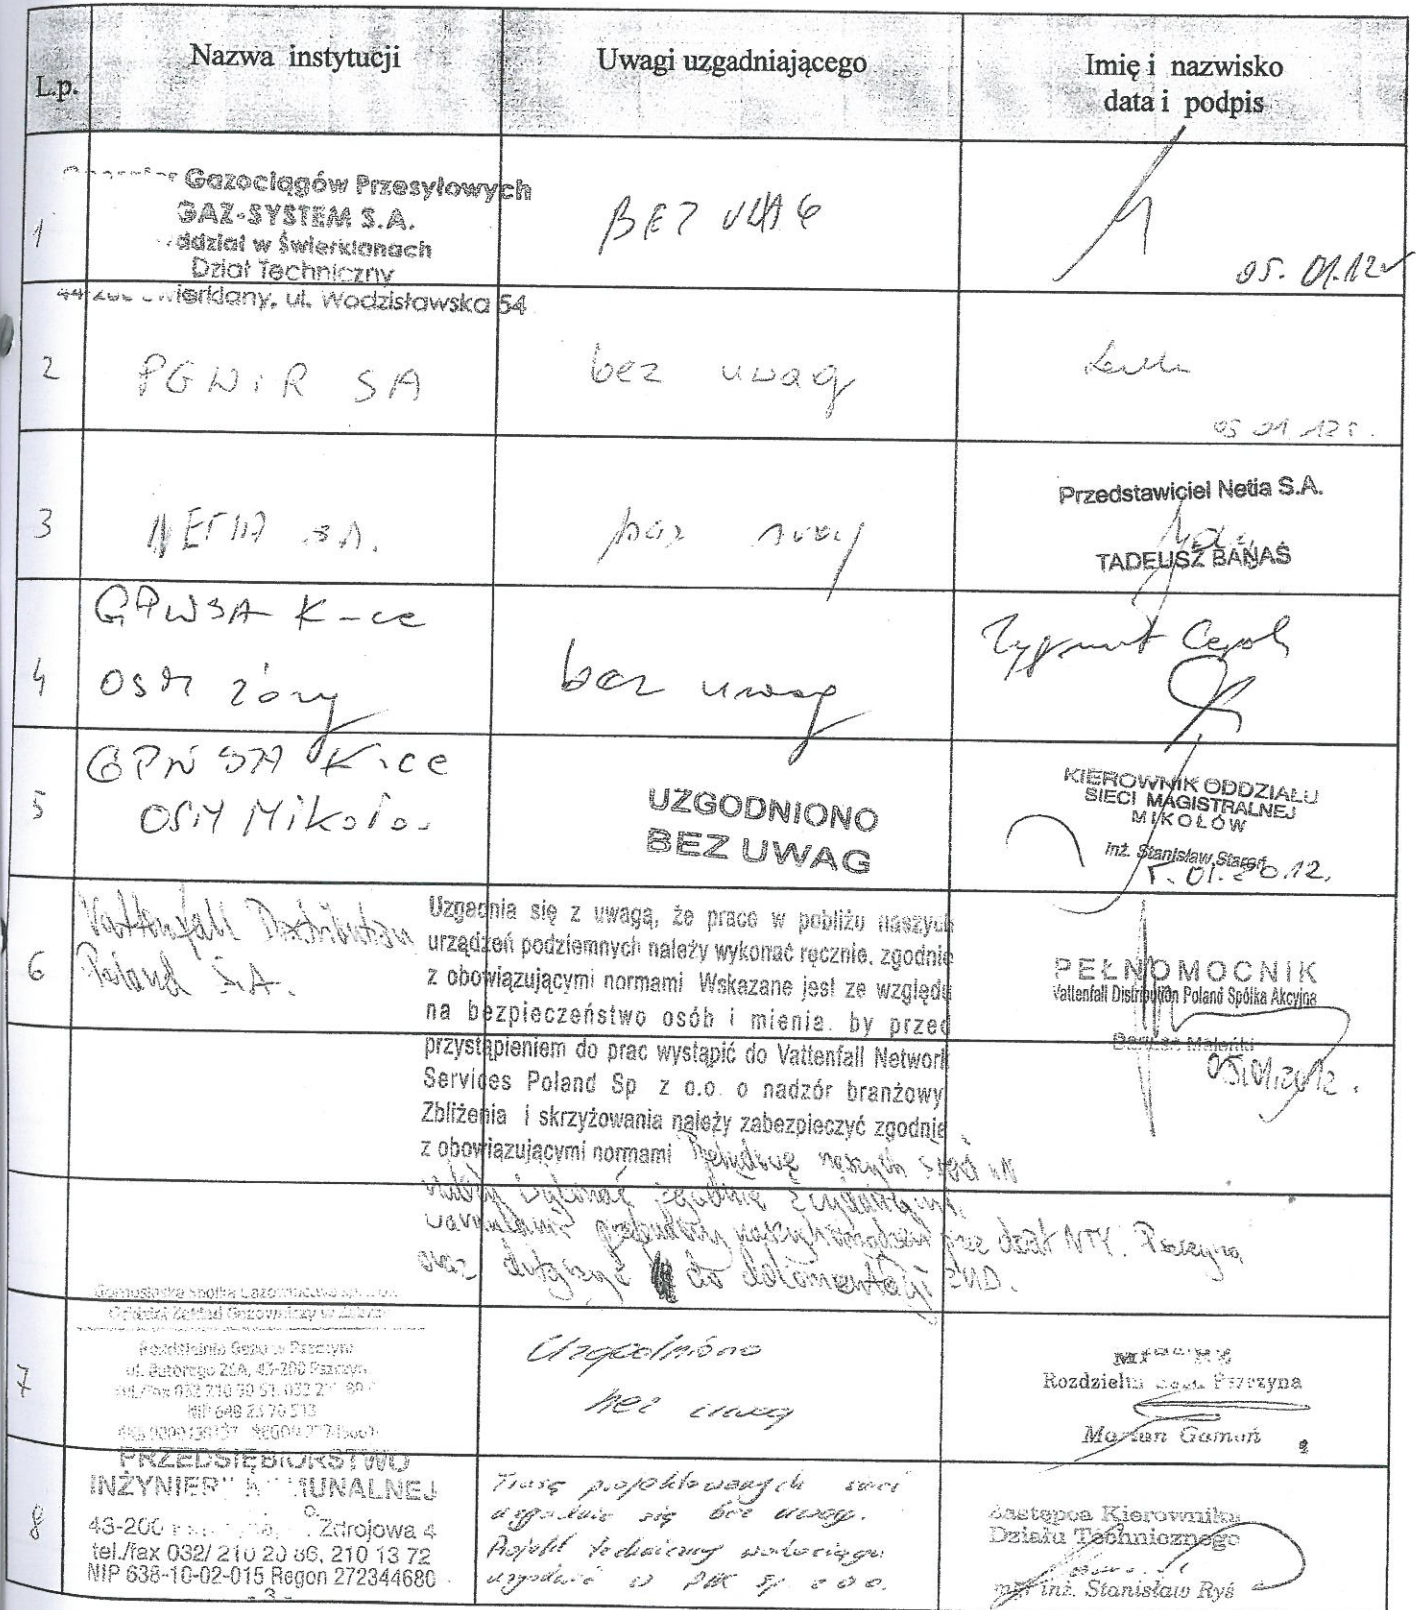 L.p.
Nazwa instytucji
Uwagi uzgadniającego
Imię i nazwisko
data i podpis
1
Gazociągów Przesyłowych
GAZ-SYSTEM S.A.
ddział w Świerklanach
Dział Techniczny
ierklany, ul. Wodzisławska 54
BEZ UWAG
05. 01. 12
2
PGNiR SA
bez uwag
05 01 12 r.
3
NETIA S.A.
bez uwag
Przedstawiciel Netia S.A.
TADEUSZ BANAŚ
4
GPW SA K-ce
OSM Żory
bez uwag
Zygmunt
5
GPW SA K-ce
OSM Mikołów
UZGODNIONO
BEZ UWAG
KIEROWNIK ODDZIAŁU
SIECI MAGISTRALNEJ
MIKOŁÓW
inż. Stanisław
5. 01. 2012.
6
Vattenfall Distribution
Poland S.A.
Uzgadnia się z uwagą, że prace w pobliżu naszych
urządzeń podziemnych należy wykonać ręcznie, zgodnie
z obowiązującymi normami Wskazane jest ze względu
na bezpieczeństwo osób i mienia. by przed
przystąpieniem do prac wystąpić do Vattenfall Network
Services Poland Sp z o.o. o nadzór branżowy
Zbliżenia i skrzyżowania należy zabezpieczyć zgodnie
z obowiązującymi normami Przebudowę naszych sieci nN
należy wykonać zgodnie z wydanymi
warunkami przebudowy naszych urządzeń przez dział NTY. Pszczyna
oraz dołączyć do dokumentacji ZUD.
PEŁNOMOCNIK
Vattenfall Distribution Poland Spółka Akcyjna
05.01.2012.
7
Rozdzielnia Gazu w Pszczynie
ul. Batorego 26A, 43-200 Pszczyna
Uzgodniono
bez uwag
Rozdzielni Pszczyna
Marian Gamoń
8
PRZEDSIĘBIORSTWO
INŻYNIER MUNALNEJ
43-200 Zdrojowa 4
tel./fax 032/ 210 20 86, 210 13 72
NIP 638-10-02-015 Regon 272344680
- 3 -
Trasę projektowanych sieci
uzgadnia się bez uwag.
Projekt techniczny wodociągu
uzgodnić w PIK Sp. z o.o.
Zastępca Kierownika
Działu Technicznego
mgr inż. Stanisław Ryś